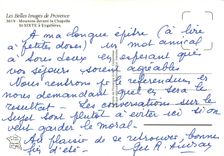 Les Belles Images de Provence
Moutons devant la Chapelle
St SIXTE à Eygalières.
A ma longue épître (à lire
à petites doses) un mot amical
à vous deux en espérant que
vos séjours seront agréables.
Nous rentrons pr le référendum, en
nous demandant quel en sera le
résultat. Les conversations sur le
sujet sont plutôt à éviter ici si on
veut garder le moral.
Au plaisir de se retrouver, bonne
fin d'été.